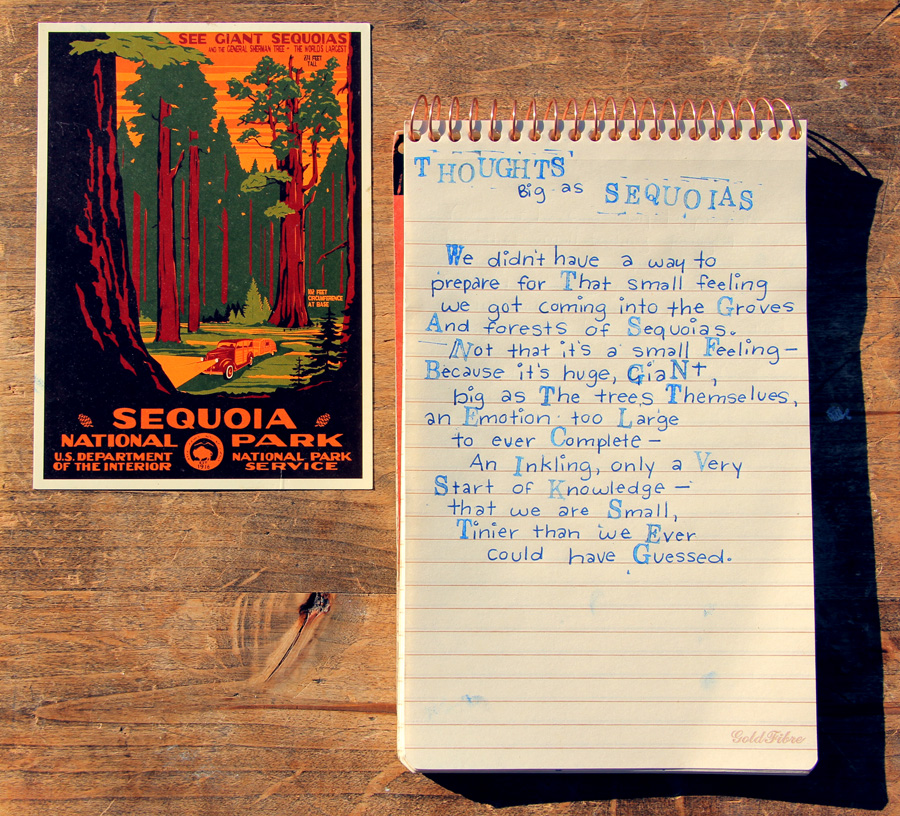 SEE GIANT SEQUOIAS
AND THE GENERAL SHERMAN TREE • THE WORLD'S LARGEST
272 FEET
TALL
102 FEET
CIRCUMFERENCE
AT BASE
SEQUOIA
NATIONAL PARK
U.S. DEPARTMENT
OF THE INTERIOR
NATIONAL PARK
SERVICE
THOUGHTS
Big as SEQUOIAS
We didn't have a way to
prepare for That small feeling
we got coming into the Groves
And forests of Sequoias.
Not that it's a small Feeling—
Because it's huge, GiaNt,
big as The trees Themselves,
an Emotion too Large
to ever Complete—
An Inkling, only a Very
Start of Knowledge—
that we are Small,
Tinier than we Ever
could have Guessed.
GoldFibre